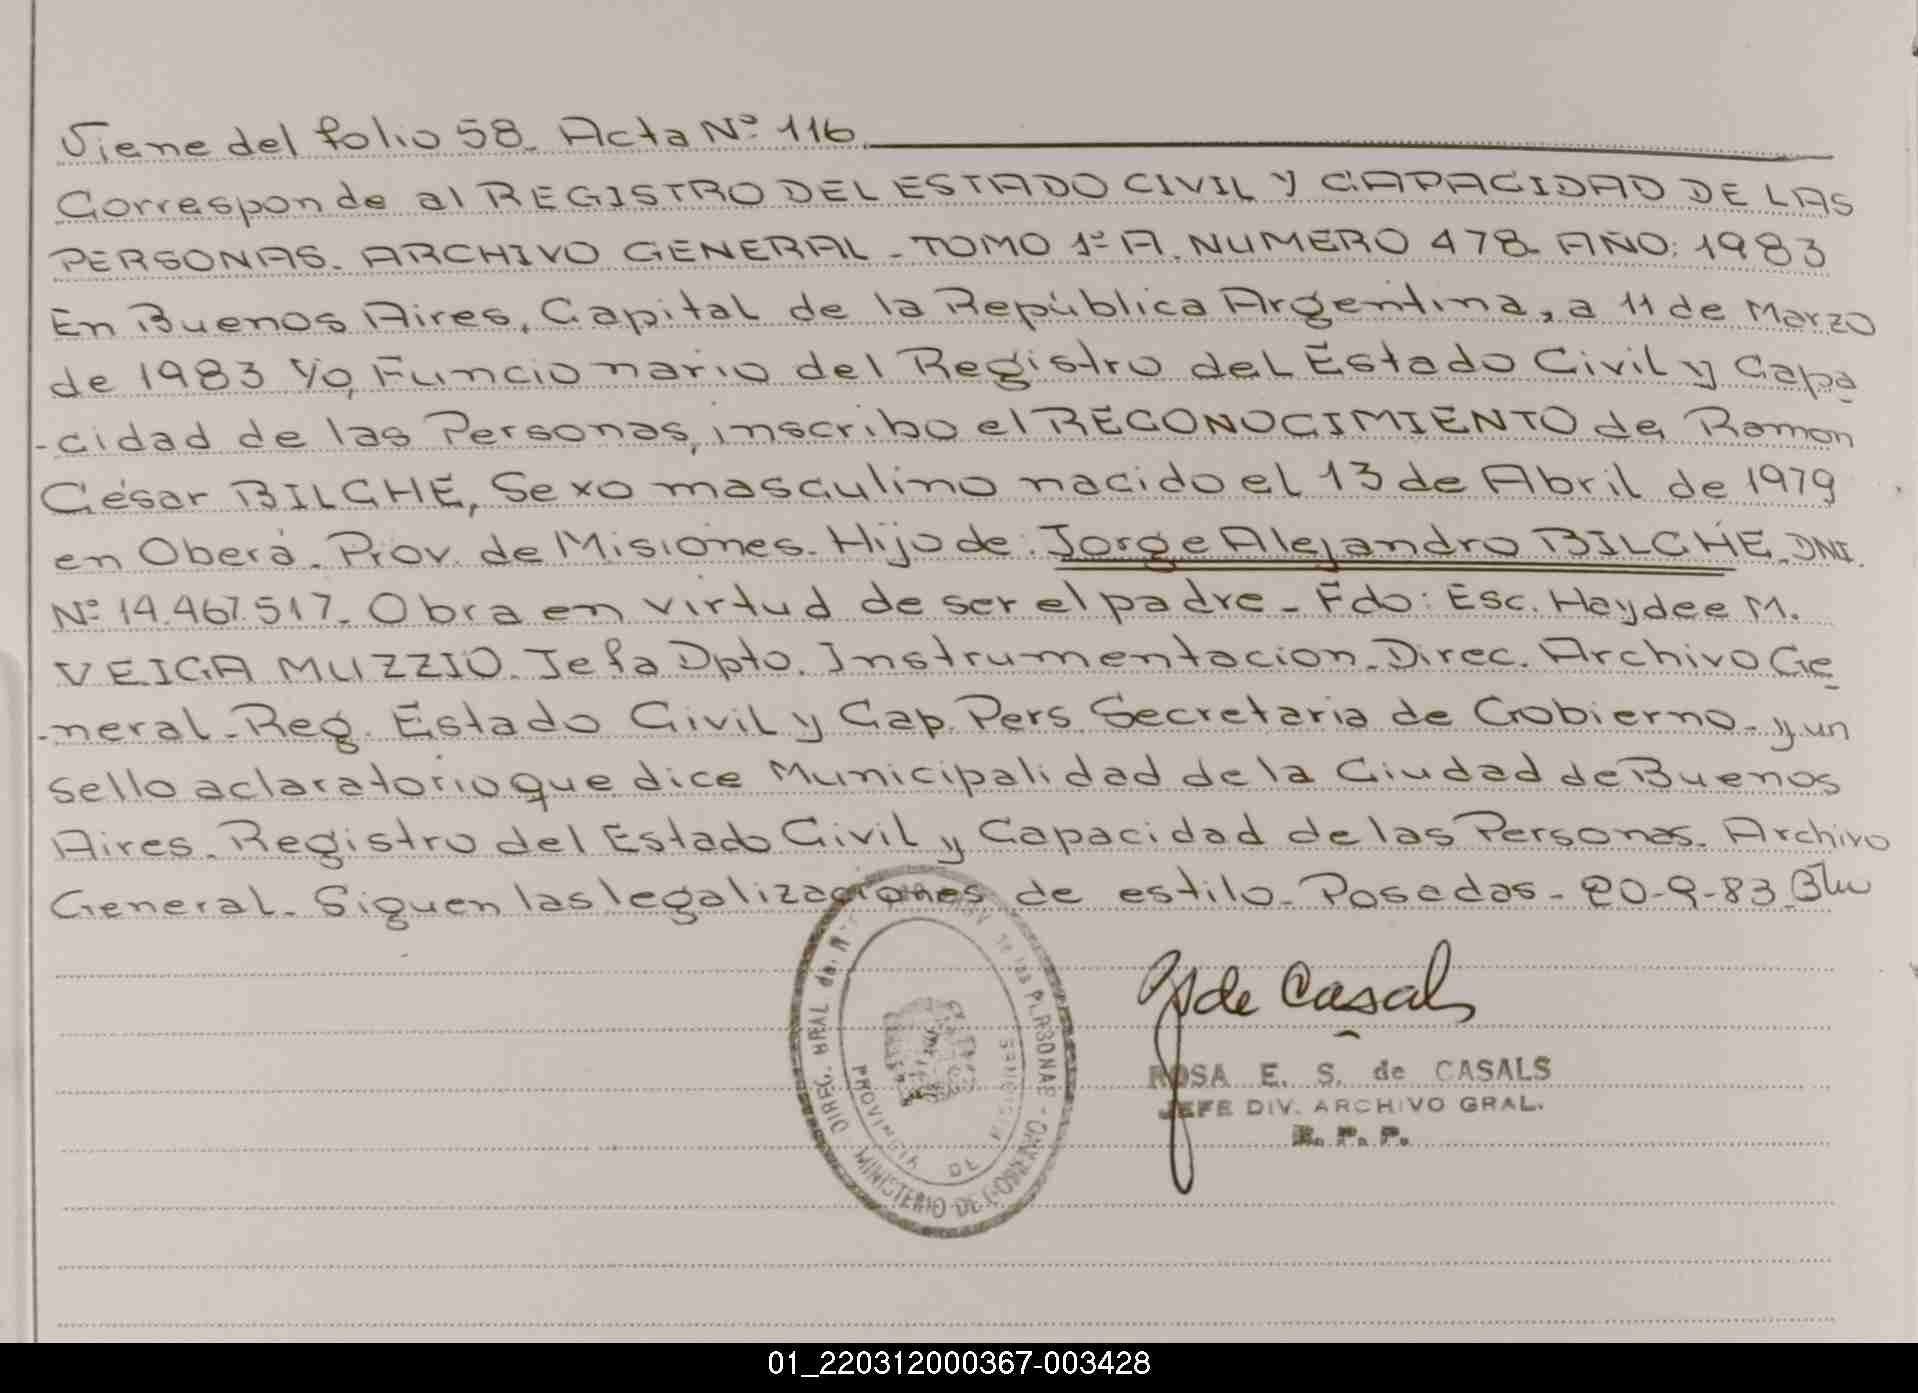 Viene del folio 58_ Acta Nº 116.
Corresponde al REGISTRO DEL ESTADO CIVIL Y CAPACIDAD DE LAS
PERSONAS. ARCHIVO GENERAL - TOMO 1º A. NUMERO 478- AÑO: 1983
En Buenos Aires, Capital de la República Argentina, a 11 de Marzo
de 1983 Yo, Funcionario del Registro del Estado Civil y Capa
-cidad de las Personas, inscribo el RECONOCIMIENTO de Ramon
César BILCHE, Sexo masculino nacido el 13 de Abril de 1979
en Oberá. Prov. de Misiones. Hijo de: Jorge Alejandro BILCHE. DNI.
Nº 14.467.517_ Obra en virtud de ser el padre_ Fdo: Esc. Haydee M.
VEIGA MUZZIO. Jefa Dpto. Instrumentacion. Direc. Archivo Ge
-neral_Reg. Estado Civil y Cap. Pers. Secretaria de Gobierno_ y un
sello aclaratorio que dice Municipalidad de la Ciudad de Buenos
Aires. Registro del Estado Civil y Capacidad de las Personas. Archivo
General_ Siguen las legalizaciones de estilo_ Posadas_ 20-9-83
DIREC. GRAL de las PERSONAS - MINISTERIO DE GOBIERNO
PROVINCIA DE MISIONES
de Casals
ROSA E. S. de CASALS
JEFE DIV. ARCHIVO GRAL.
R. P. P.
01_220312000367-003428